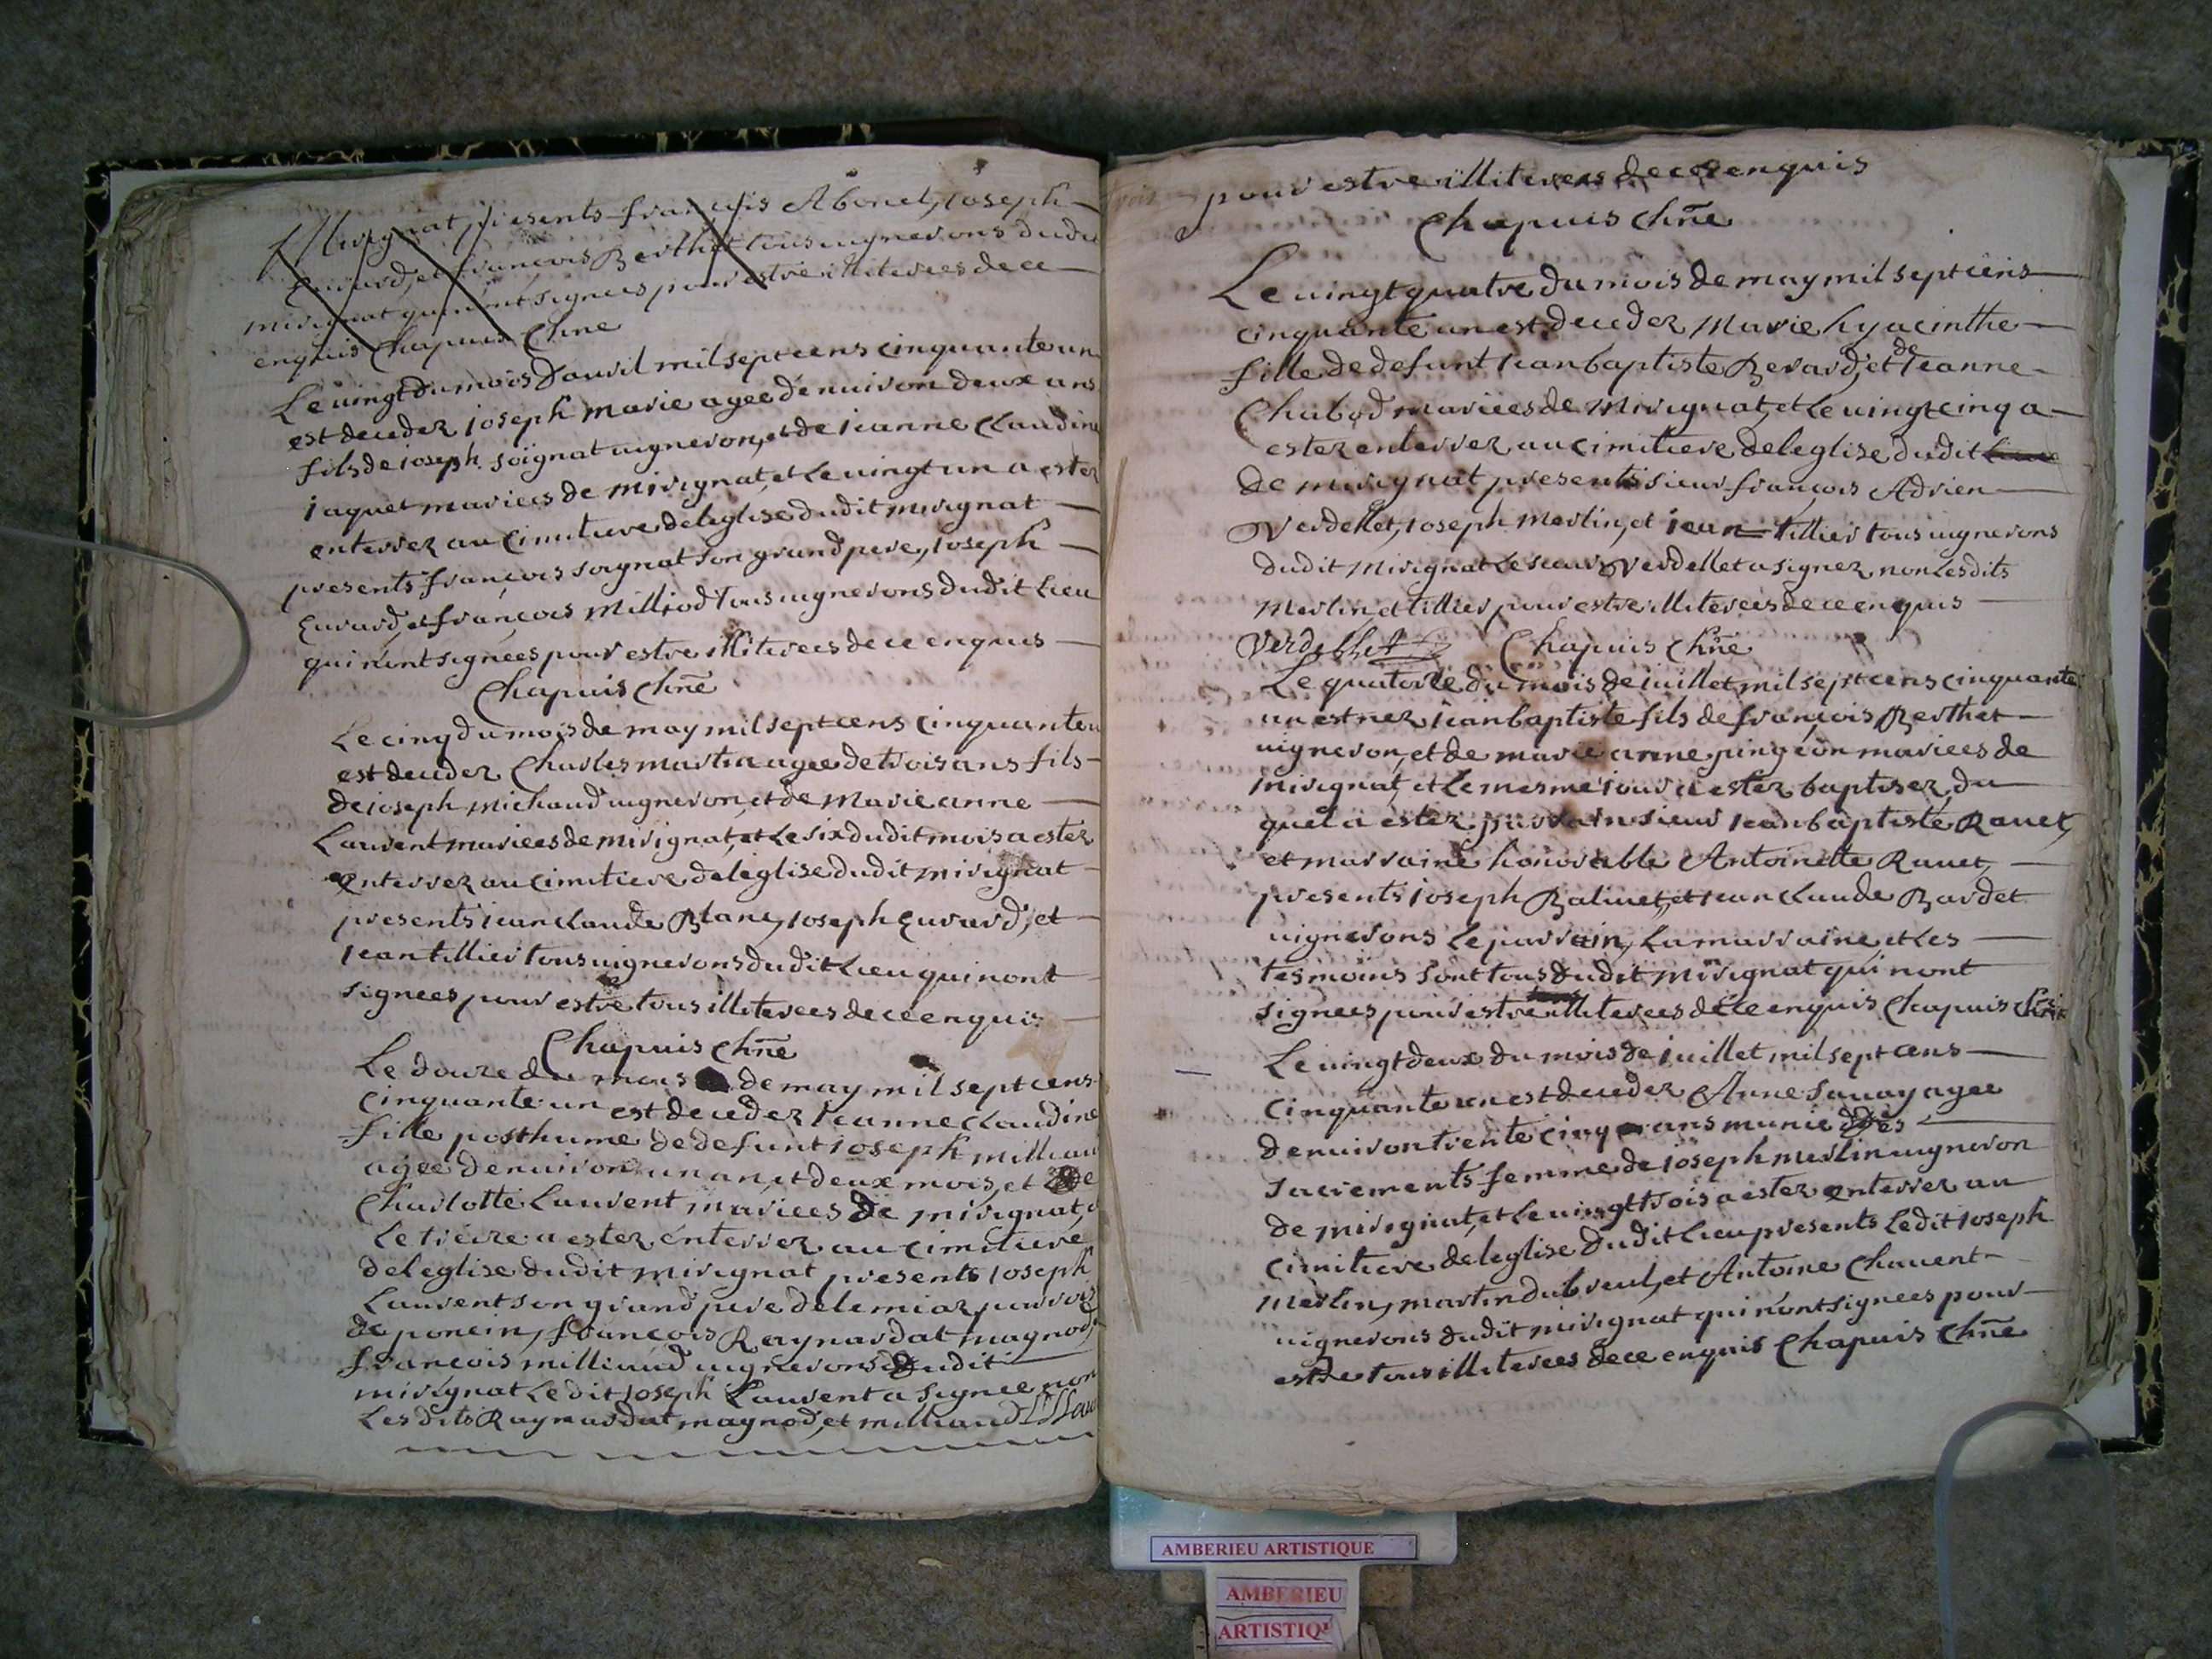 Mirignat, presents françois Abonel, Joseph
Euvard, et françois Berthet tous uignerons dudit
mirignat qui nont signees pour estre illiterees de ce
enquis Chapuis Chne
Le uingt du mois dauril mil sept cens cinquante un
est deceder Joseph marie agee denuiron deux ans
fils de ioseph soignat uigneron, et de ieanne Claudine
iaquet mariees de mirignat, et le uingt un a ester
enterrer au cimitiere deleglise dudit mirignat
presents françois soignat son grand pere, Joseph
Euvard, et françois Milliod tous uignerons dudit lieu
qui nont signees pour estre illiterees de ce enquis
Chapuis Chne
Le cinq du mois de may mil sept cens cinquante un
est deceder Charles martin agee de trois ans fils
de ioseph michaud uigneron, et de Marie anne
Laurent mariees de mirignat, et le six dudit mois a ester
enterrer au cimitiere deleglise dudit mirignat
presents iean claude Blanc, Joseph Euvard, et
iean tillier tous uignerons dudit lieu qui nont
signees pour estre tous illiterees de ce enquis
Chapuis Chne
Le douze du mois de may mil sept cens
cinquante un est deceder ieanne Claudine
fille posthume de defunt ioseph milliaud
agee denuiron un an, et deux mois, et de
Charlotte Laurent mariees de mirignat,
Le treize a ester enterrer au cimitiere
deleglise dudit mirignat presents Joseph
Laurent son grand pere de parroisse
de poncin, françois Raynardat magnod,
françois milliaud uignerons dudit
mirignat Le dit Joseph Laurent a signee non
Les dits Raynardat, magnod, et milliaud
pour estre illiterees de ce enquis
Chapuis Chne
Le uingt quatre du mois de may mil sept cens
cinquante un est deceder Marie hyacinthe
fille de defunt iean baptiste Berard, et de Jeanne
Chabod mariees de Mirignat, et le uingt cinq a
ester enterrer au cimitiere deleglise dudit
de mirignat presents sieur françois Adrien
Verdellet, Joseph Merlin, et iean tillier tous uignerons
dudit Mirignat le sieur Verdellet a signer non lesdits
Merlin, et tillier pour estre illiterees de ce enquis
Verdellet Chapuis Chne
Le quatorze du mois de iuillet mil sept cens cinquante
un est nez iean baptiste fils de françois Berthet
uigneron, et de marie anne pingeon mariees de
mirignat, et le mesme iour a ester baptiser, du
quel a ester parrain sieur iean baptiste Rauet,
et marraine honorable Antoinette Rauet,
presents ioseph Baliuet, et iean claude Bardet
uignerons le parrain, la marraine, et les
tesmoins sont tous dudit mirignat qui nont
signees pour estre illiterees de ce enquis Chapuis Chne
Le uingt deux du mois de iuillet mil sept cens
cinquante un est deceder Anne Sauay agee
denuiron trente cinq ans munie des
sacrements femme de ioseph merlin uigneron
de mirignat, et le uingt trois a ester enterrer au
cimitiere deleglise dudit lieu presents ledit ioseph
Merlin, martin dubreul, et Antoine Chauent
uignerons dudit mirignat qui nont signees pour
estre tous illiterees de ce enquis Chapuis Chne
AMBERIEU ARTISTIQUE
AMBERIEU
ARTISTIQ